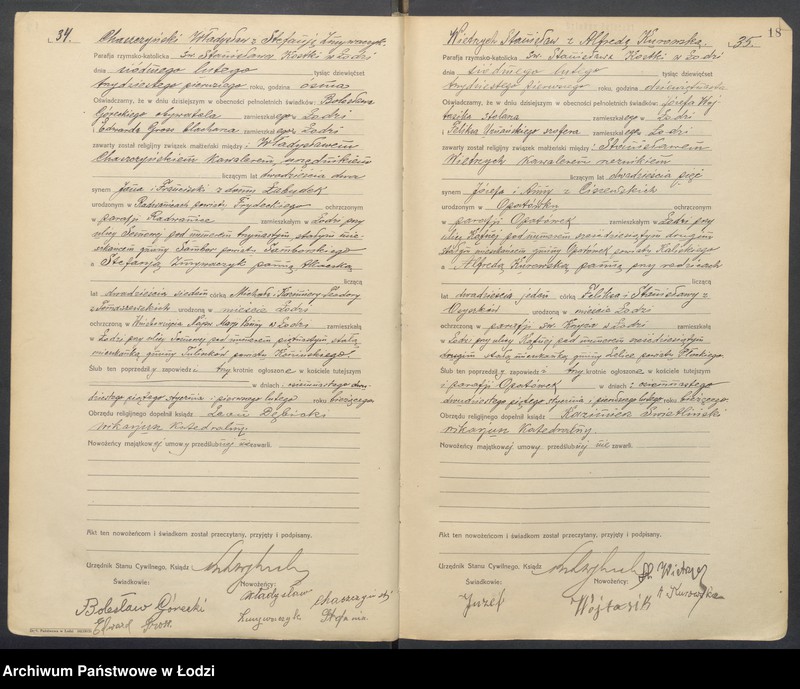 34. Chaszczyński Władysław z Stefanją Zmywaczyk.
Parafja rzymsko-katolicka Św. Stanisława Kostki w Łodzi
dnia siódmego lutego tysiąc dziewięćset
trzydziestego pierwszego roku, godzina ósma
Oświadczamy, że w dniu dzisiejszym w obecności pełnoletnich świadków: Bolesława
Góreckiego obywatela zamieszkałego w Łodzi
Edwarda Gross ślusarza zamieszkałego w Łodzi
zawarty został religijny związek małżeński między: Władysławem
Chaszczyńskiem kawalerem, urzędnikiem
liczącym lat dwadzieścia dwa
synem Jana i Franciszki z domu
urodzonym w powiatu ochrzczonym
w parafji Radwanice zamieszkałym w Łodzi przy
ulicy pod numerem trzynastym, stałym mie-
szkańcem gminy Sambor powiatu Samborskiego
a Stefanją Zmywaczyk panną
liczącą
lat dwadzieścia siedem córką Michała i
Tomaszewskich urodzoną w mieście Łodzi
ochrzczoną w Najśw. Marji Panny w Łodzi zamieszkałą
w Łodzi przy ulicy pod numerem piętnastym stałą
mieszkanką gminy powiatu
Ślub ten poprzedziły zapowiedzi trzykrotnie ogłoszone w kościele tutejszym
w dniach: osiemnastego dwu-
dziestego piątego stycznia i pierwszego lutego roku bieżącego.
Obrzędu religijnego dopełnił ksiądz Leon Dębicki
wikarjusz Katedralny.
Nowożeńcy majątkowej umowy przedślubnej nie zawarli.
Akt ten nowożeńcom i świadkom został przeczytany, przyjęty i podpisany.
Urzędnik Stanu Cywilnego, Ksiądz
Świadkowie: Nowożeńcy:
Bolesław Górecki Władysław Chaszczyński
Edward Gross. Zmywaczyk Stefania
18
Wietrzych Stanisław z Alfredą Kurowską. 35.
Parafja rzymsko-katolicka Św. Stanisława Kostki w Łodzi
dnia siódmego lutego tysiąc dziewięćset
trzydziestego pierwszego roku, godzina dziewiętnasta
Oświadczamy, że w dniu dzisiejszym w obecności pełnoletnich świadków: Józefa Woj
tasika stolarza zamieszkałego w Łodzi
Feliksa szofera zamieszkałego w Łodzi
zawarty został religijny związek małżeński między: Stanisławem
Wietrzych kawalerem
liczącym lat dwadzieścia pięć
synem Józefa i Anny z Ciszewskich
urodzonym w Opatówku ochrzczonym
w parafji Opatówek zamieszkałym w Łodzi przy
ulicy pod numerem sześćdziesiątym drugim
stałym mieszkańcem gminy Opatówek powiatu Kaliskiego
a Alfredą Kurowską panną przy rodzicach
liczącą
lat dwadzieścia jeden córką Feliksa i Stanisławy z
urodzoną w mieście Łodzi
ochrzczoną w parafji św. Krzyża w Łodzi zamieszkałą
w Łodzi przy ulicy pod numerem sześćdziesiątym
drugim stałą mieszkanką gminy powiatu
Ślub ten poprzedziły zapowiedzi trzykrotnie ogłoszone w kościele tutejszym
i parafji Opatówek w dniach: osiemnastego
dwudziestego piątego stycznia i pierwszego lutego roku bieżącego.
Obrzędu religijnego dopełnił ksiądz Kazimierz Świetliński
wikarjusz Katedralny.
Nowożeńcy majątkowej umowy przedślubnej nie zawarli.
Akt ten nowożeńcom i świadkom został przeczytany, przyjęty i podpisany.
Urzędnik Stanu Cywilnego, Ksiądz
Świadkowie: Nowożeńcy: St. Wietrzych
Józef Wojtasik A Kurowska
Archiwum Państwowe w Łodzi